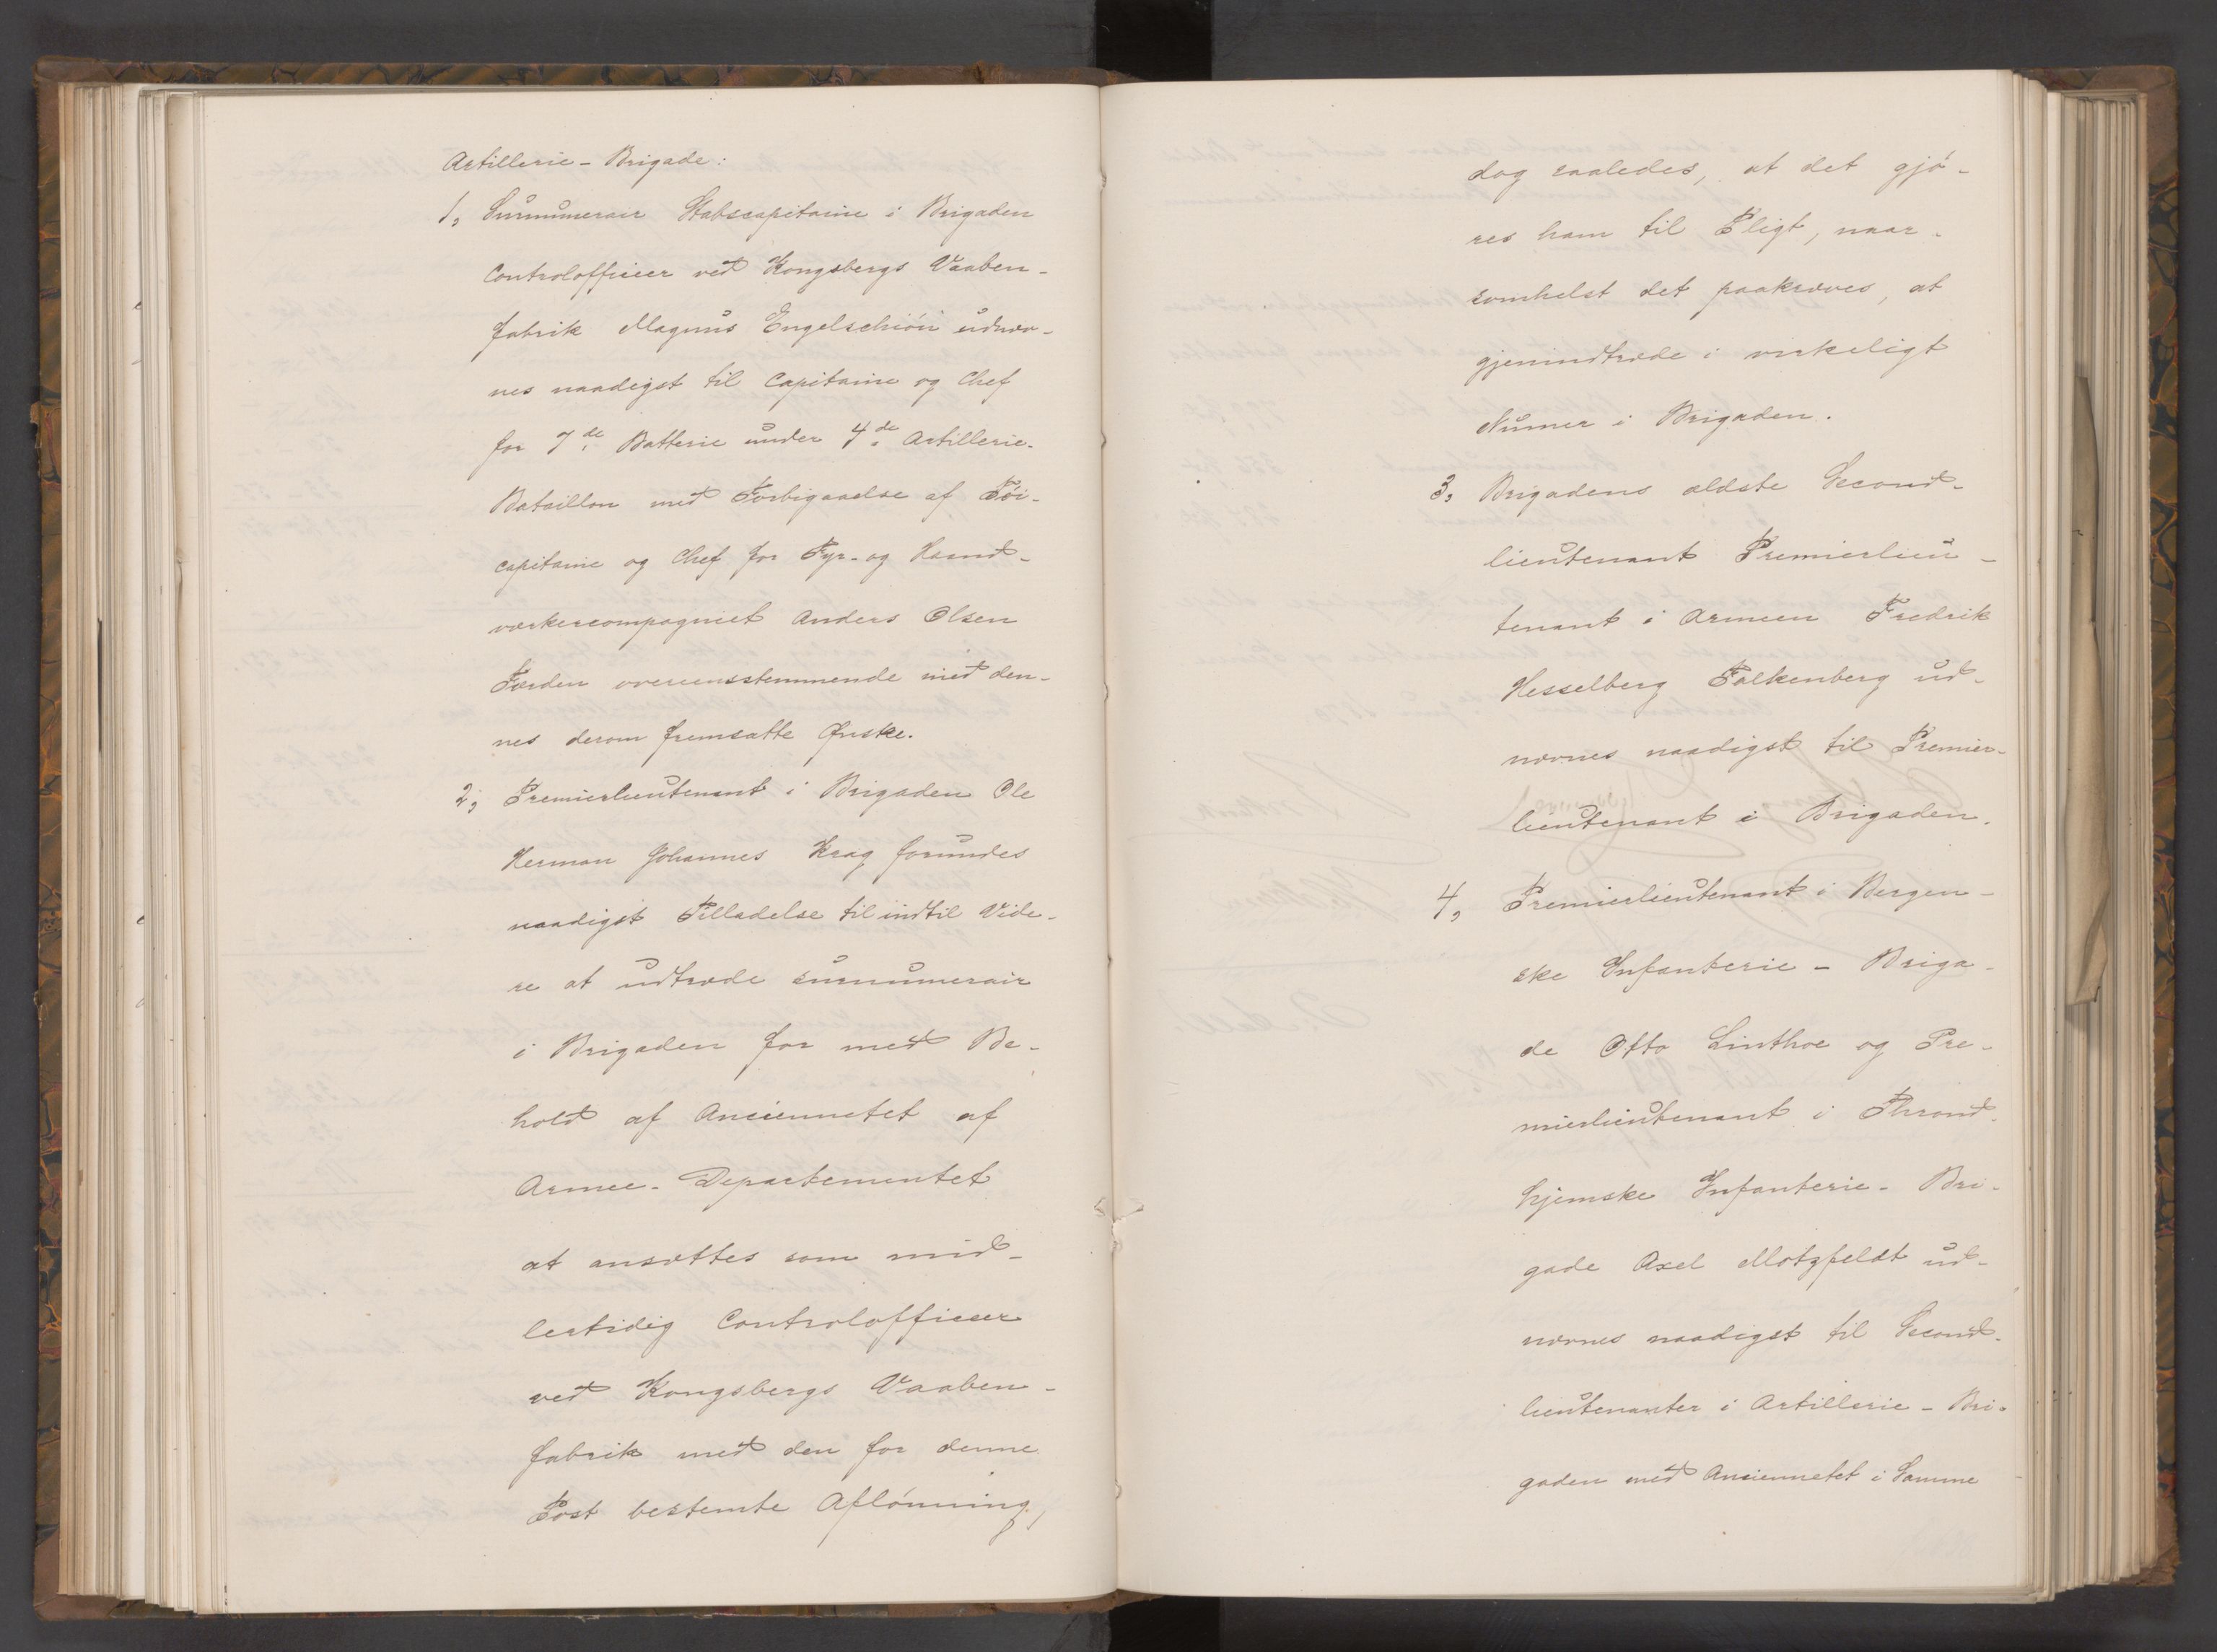 Artillerie-Brigade:
1, Surnumerair Stabscapitaine i Brigaden
Controlofficeer ved Kongsbergs Vaaben-
fabrik Magnus Engelschiøn udnæv-
nes naadigst til Capitaine og Chef
for 7de Batterie under 4de Artillerie-
Bataillon med Forbigaaelse af Tøi-
capitaine og Chef for Fyr- og Haand-
værkercompagniet Anders Olsen
Færden overeensstemmende med den-
nes derom fremsatte Ønske.
2, Premierlieutenant i Brigaden Ole
Herman Johannes Krag forundes
naadigst Tilladelse til indtil Vide-
re at udtræde surnumerair
i Brigaden for med Be-
hold af Anciennetet af
Armee-Departementet
at ansættes som mid-
lertidig Controlofficeer
ved Kongsbergs Vaaben-
fabrik med den for denne
Post bestemte Aflønning,
dog saaledes, at det gjø-
res ham til Pligt, naar-
somhelst det paakræves, at
gjenindtræde i virkeligt
Numer i Brigaden.
3, Brigadens ældste Second-
lieutenant Premierlieu-
tenant i Armeen Fredrik
Hesselberg Falkenberg ud-
nævnes naadigst til Premier-
lieutenant i Brigaden.
4, Premierlieutenant i Bergen-
ske Infanterie-Briga-
de Otto Linthoe og Pre-
mierlieutenant i Thrond-
hjemske Infanterie-Bri-
gade Axel Motzfeldt ud-
nævnes naadigst til Second-
lieutenanter i Artillerie-Bri-
gaden med Anciennetet i Samme